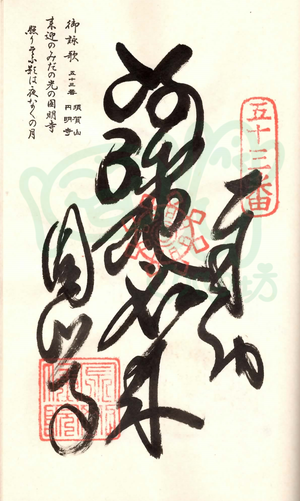 五十三番
奉納
阿弥陀如来
圓明寺
御詠歌 五十三番 須賀山 円明寺
来迎のみだの光の圓明寺
照りそふ影は夜な〱の月
坊